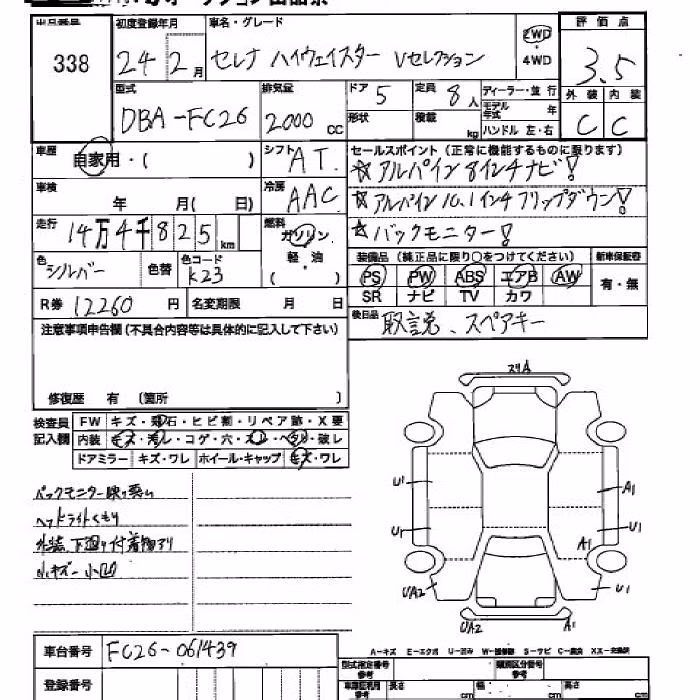 出品番号 338
初度登録年月 24 2月
車名・グレード セレナ ハイウェイスター Vセレクション
2WD・4WD
評価点 3.5
外装 C 内装 C
型式 DBA-FC26
排気量 2000 cc
ドア 5 定員 8人 ディーラー・並行
形状 積載 kg モデル年式 年
ハンドル 左・右
車歴 自家用・( )
シフト AT
セールスポイント(正常に機能するものに限ります)
☆アルパイン8インチナビ!
車検 年 月( 日)
冷房 AAC
☆アルパイン10.1インチフリップダウン!
走行 14万4千825km
燃料 ガソリン・軽油 ( )
☆バックモニター!
色 シルバー 色替 色コード K23
装備品(純正品に限り○をつけてください) 新車保証書
PS PW ABS エアB AW 有・無
SR ナビ TV カワ
R券 12260円 名変期限 月 日
後日品 取説、スペアキー
注意事項申告欄(不具合内容等は具体的に記入して下さい)
修復歴 有 〔箇所 〕
検査員記入欄
FW キズ・飛石・ヒビ割・リペア跡・X要
内装 キズ・汚レ・コゲ・穴・スレ・ヘタリ・破レ
ドアミラー キズ・ワレ ホイール・キャップ キズ・ワレ
バックモニター映り悪い
ヘッドライトくもり
外装、下廻り付着物有り
小キズ 小凹
スリA
U1 A1
U1 U1
A1
UA2 U1
UA2 A1
車台番号 FC26-061439
A-キズ E-エクボ U-凹み W-補修跡 S-サビ C-腐食 XX-交換済
登録番号
型式指定番号 参考 類別区分番号 参考
長さ cm 幅 cm 高さ cm